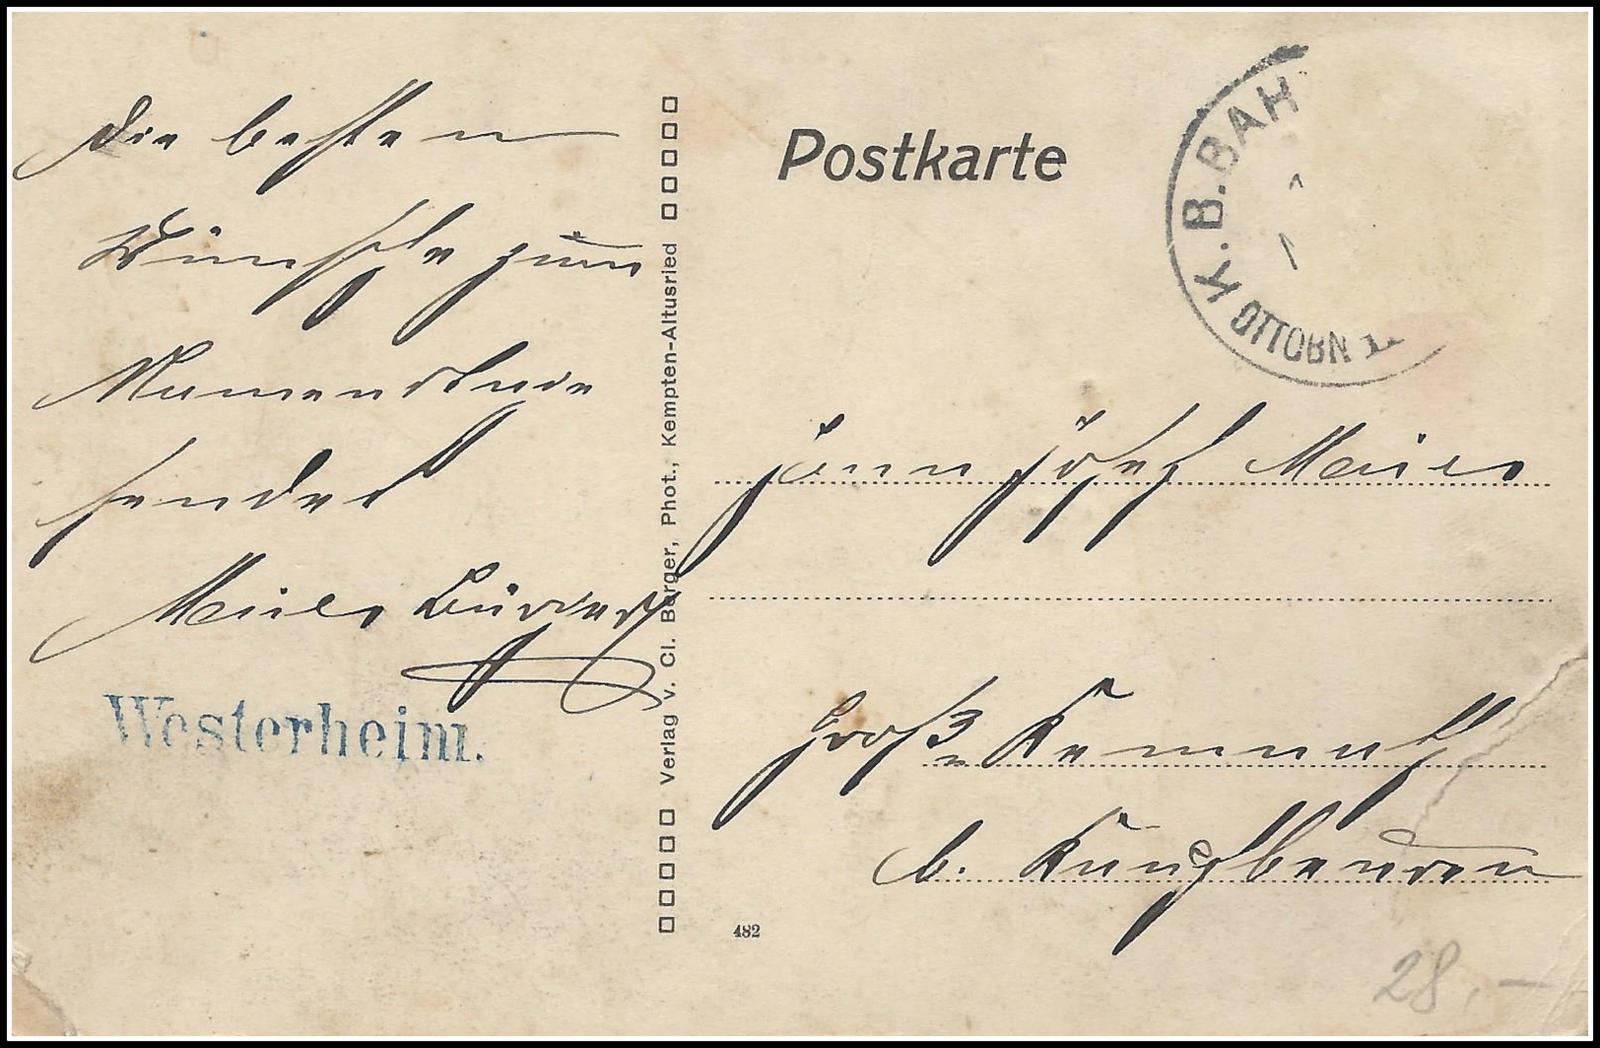 Die besten
Wünsche zum
Namenstage
sendet
Maier
Westerheim.
Verlag v. Cl. Berger, Phot., Kempten-Altusried
Postkarte
K.B.BAH
OTTOBN
Herrn Josef Maier
Groß Kemnath
b. Kaufbeuren
482
28,-